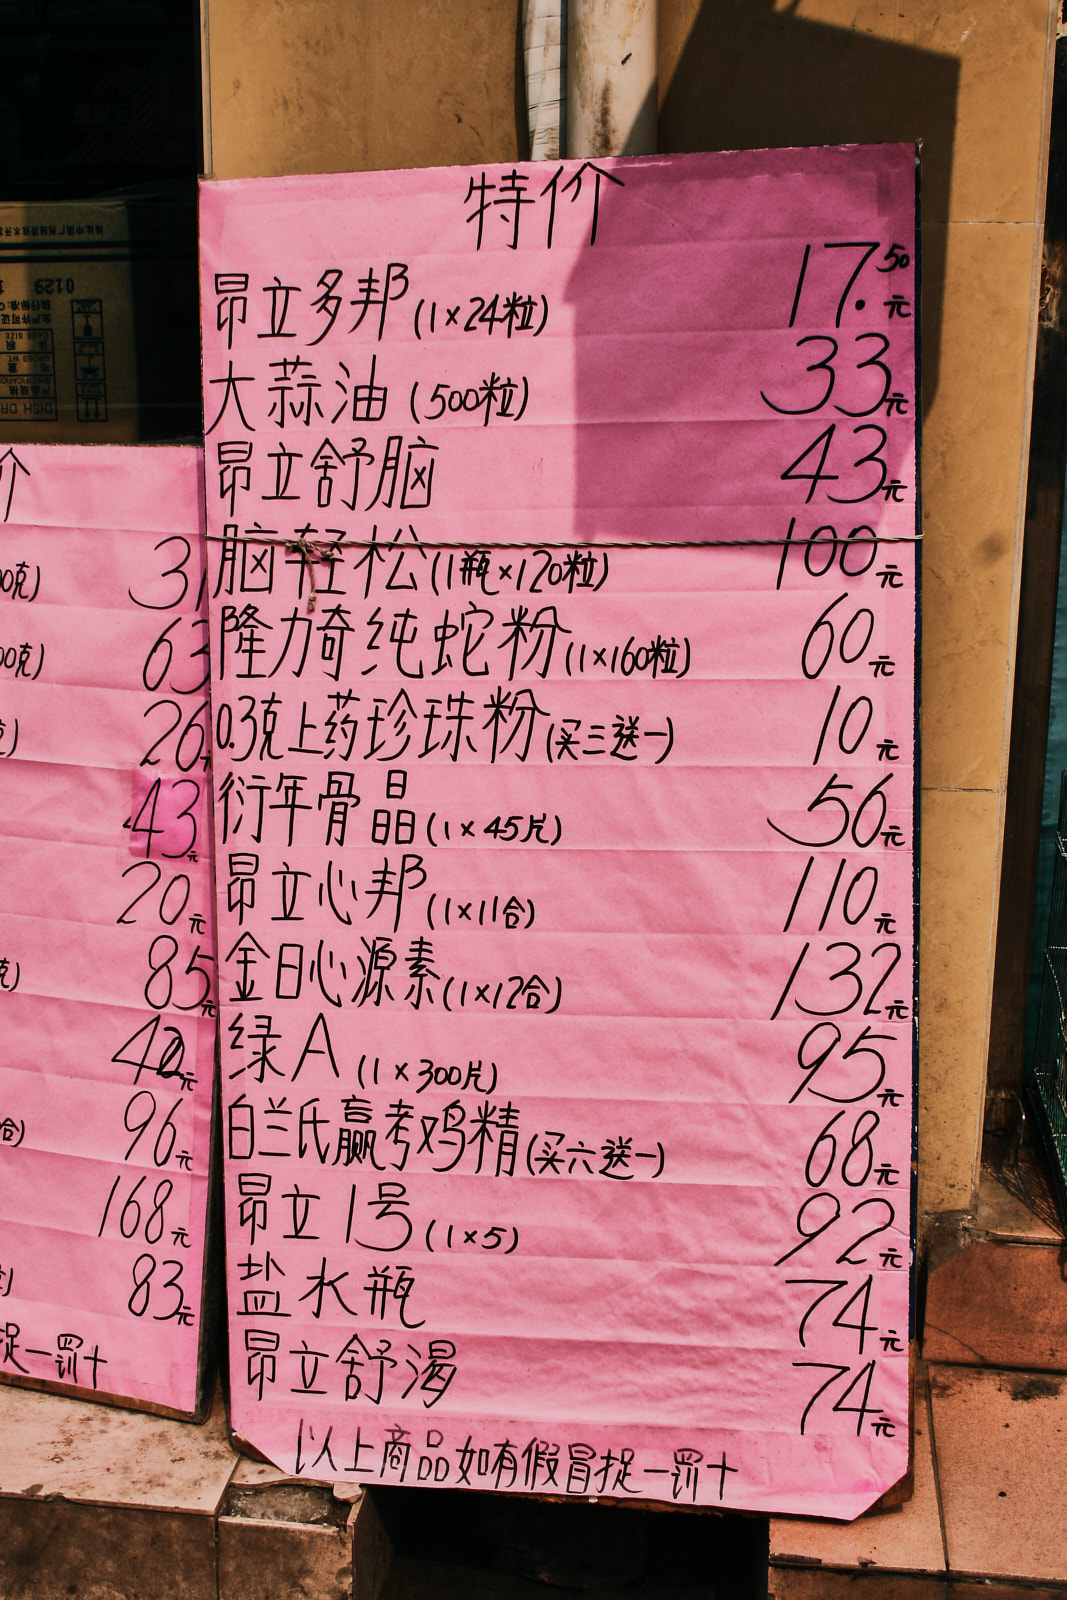 特价
昂立多邦(1×24粒) 17.50元
大蒜油(500粒) 33元
昂立舒脑 43元
脑轻松(1瓶×120粒) 100元
隆力奇纯蛇粉(1×160粒) 60元
0.3克上药珍珠粉(买三送一) 10元
衍年骨晶(1×45片) 56元
昂立心邦(1×11合) 110元
金日心源素(1×12合) 132元
绿A(1×300片) 95元
白兰氏赢考鸡精(买六送一) 68元
昂立1号(1×5) 92元
盐水瓶 74元
昂立舒渴 74元
以上商品如有假冒捉一罚十
价
00克) 31
00克) 63
克) 26元
43元
20元
克) 85元
42元
合) 96元
168元
83元
捉一罚十
0129
CASE SIZE
GROSS WT
SPECIFICATION
产品规格
DISH DR